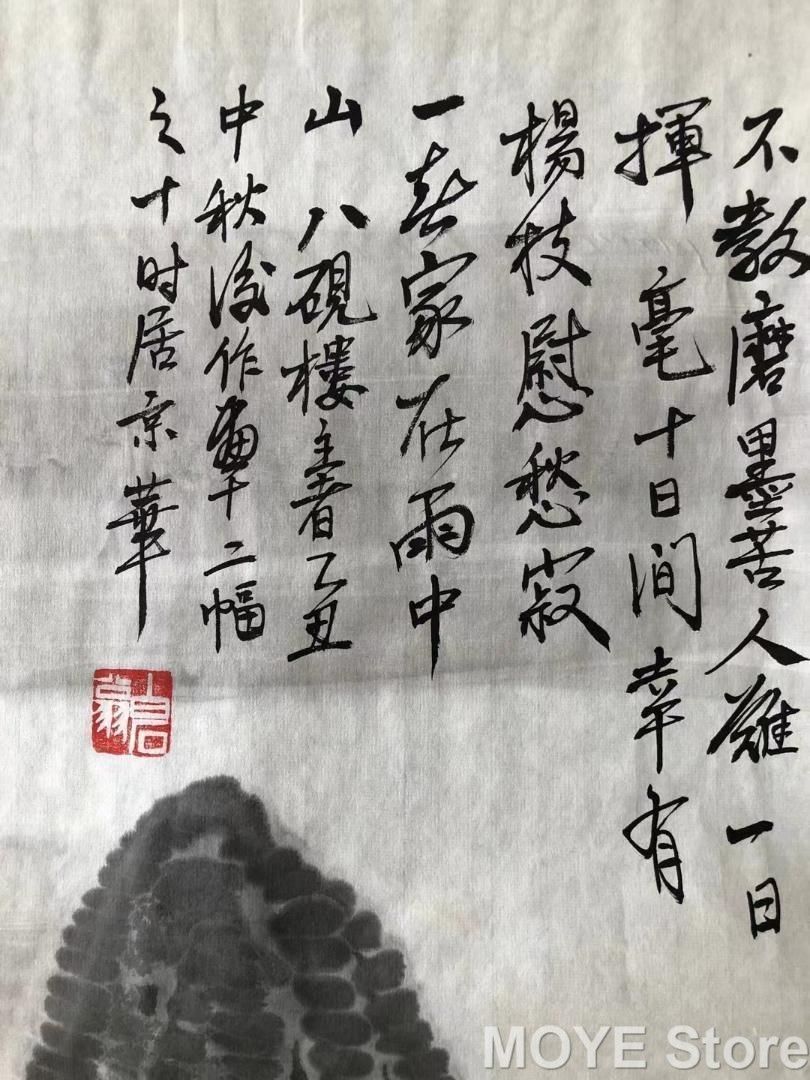 不教磨墨苦人難一日
揮毫十日間幸有
楊枝慰愁寂
一春家在雨中
山八硯樓主者乙丑
中秋後作畫十二幅
之十时居京華
MOYE Store